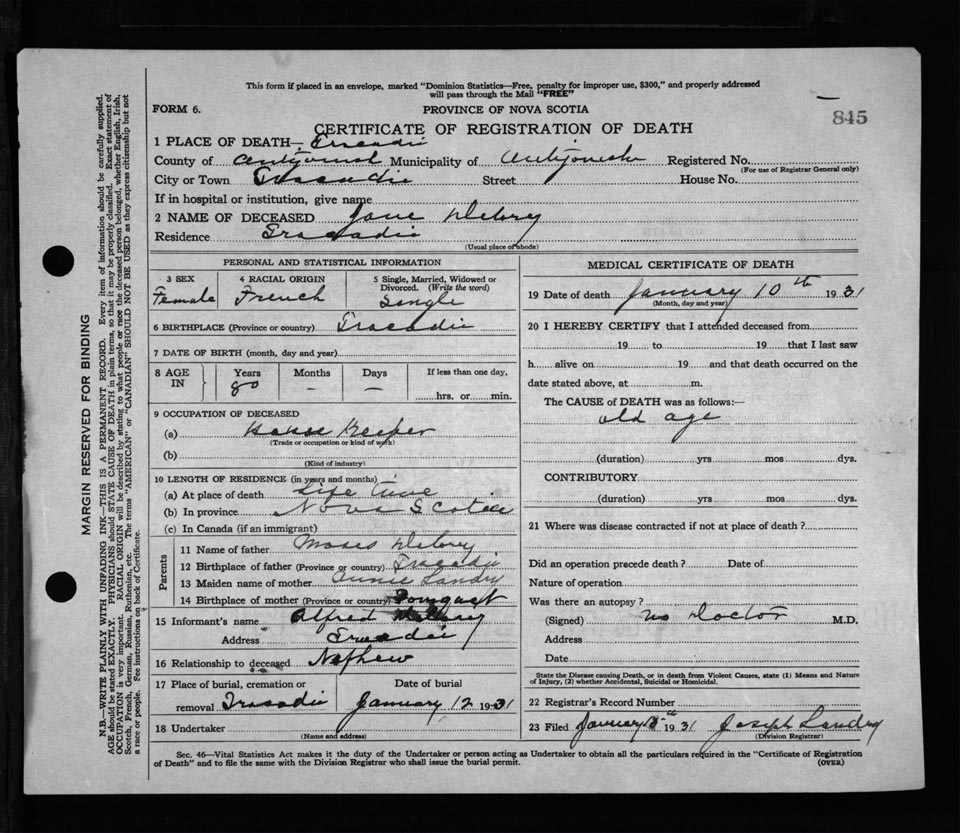 This form if placed in an envelope, marked "Dominion Statistics—Free, penalty for improper use, $300," and properly addressed
will pass through the Mail "FREE"
FORM 6.
PROVINCE OF NOVA SCOTIA
845
CERTIFICATE OF REGISTRATION OF DEATH
1 PLACE OF DEATH— Tracadie
County of Antigonish Municipality of Antigonish Registered No.
(For use of Registrar General only)
City or Town Tracadie Street House No.
If in hospital or institution, give name
2 NAME OF DECEASED Jane Delorey
Residence Tracadie
(Usual place of abode)
PERSONAL AND STATISTICAL INFORMATION
3 SEX 4 RACIAL ORIGIN 5 Single, Married, Widowed or
Divorced. (Write the word)
Female French Single
6 BIRTHPLACE (Province or country) Tracadie
7 DATE OF BIRTH (month, day and year)
8 AGE IN Years Months Days If less than one day,
80 — — hrs. or min.
9 OCCUPATION OF DECEASED
(a) House Keeper
(Trade or occupation or kind of work)
(b)
(Kind of industry)
10 LENGTH OF RESIDENCE (in years and months)
(a) At place of death Life time
(b) In province Nova Scotia
(c) In Canada (if an immigrant)
Parents
11 Name of father Moses
12 Birthplace of father (Province or country) Tracadie
13 Maiden name of mother Annie Landry
14 Birthplace of mother (Province or country) Pomquet
15 Informant's name Alfred
Address Tracadie
16 Relationship to deceased Nephew
17 Place of burial, cremation or Date of burial
removal Tracadie January 12 1931
18 Undertaker
(Name and address)
MEDICAL CERTIFICATE OF DEATH
19 Date of death January 10th 1931
(Month, day and year)
20 I HEREBY CERTIFY that I attended deceased from
19 to 19 that I last saw
h alive on 19 and that death occurred on the
date stated above, at m.
The CAUSE of DEATH was as follows:—
old age
(duration) yrs mos dys.
CONTRIBUTORY
(duration) yrs mos dys.
21 Where was disease contracted if not at place of death?
Did an operation precede death? Date of
Nature of operation
Was there an autopsy?
(Signed) No Doctor M.D.
Address
Date
State the Disease causing Death, or in death from Violent Causes, state (1) Means and Nature
of Injury, (2) whether Accidental, Suicidal or Homicidal.
22 Registrar's Record Number
23 Filed January 1931 Joseph Landry
(Division Registrar)
Sec. 46—Vital Statistics Act makes it the duty of the Undertaker or person acting as Undertaker to obtain all the particulars required in the "Certificate of Registration
of Death" and to file the same with the Division Registrar who shall issue the burial permit.
(OVER)
MARGIN RESERVED FOR BINDING
N.B.—WRITE PLAINLY WITH UNFADING INK—THIS IS A PERMANENT RECORD. Every item of information should be carefully supplied.
AGE should be stated EXACTLY. PHYSICIANS should STATE CAUSE OF DEATH in plain terms, so that it may be properly classified. Exact statement of
OCCUPATION is very important. RACIAL ORIGIN will be described by stating to what people or race the deceased person belonged, whether English, Irish,
Scotch, French, German, Russian, Ruthenian, etc. The terms "AMERICAN" or "CANADIAN" SHOULD NOT BE USED as they express citizenship but not
a race or people. Fee instructions on back of Certificate.